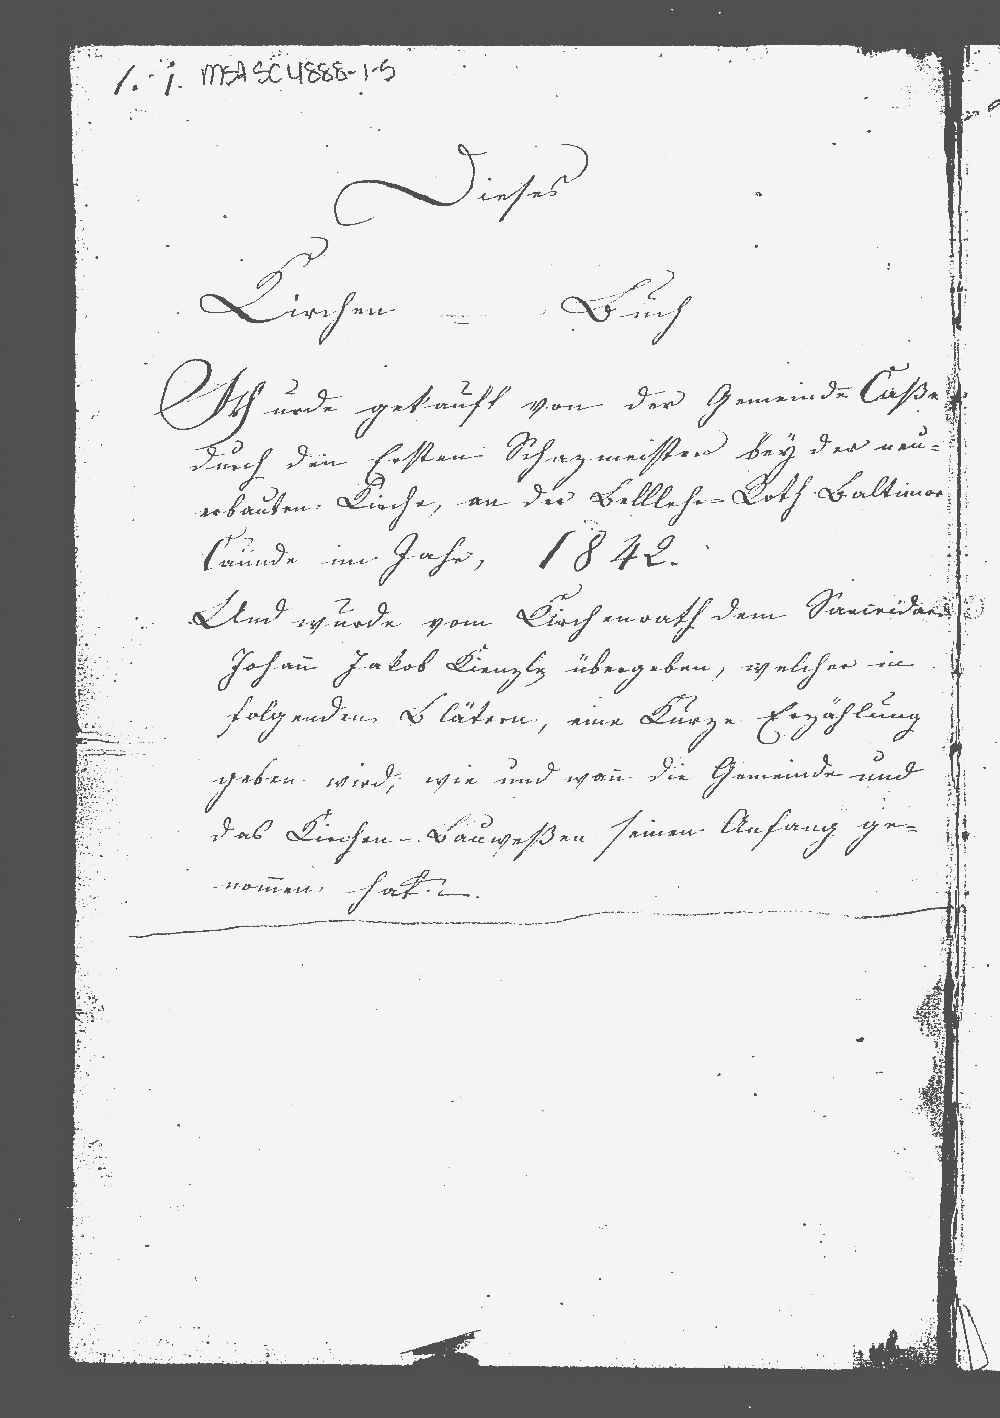 1. 1. MSA SC 4888-1-5
Dieses
Kirchen = Buch
Wurde gekauft von der Gemeinde Caße
durch den Ersten Schazmeister bey der neu-
erbauten Kirche, an der Belllehr=Roth Baltimor
Caunde im Jahr, 1842.
Und wurde vom Kirchenrath dem
Johan̄ Jakob Kienzle übergeben, welcher in
folgenden Blätern, eine Kurze Erzählung
geben wird, wie und wan̄ die Gemeinde und
das Kirchen-Bauweßen seinen Anfang ge=
nom̄en hat.